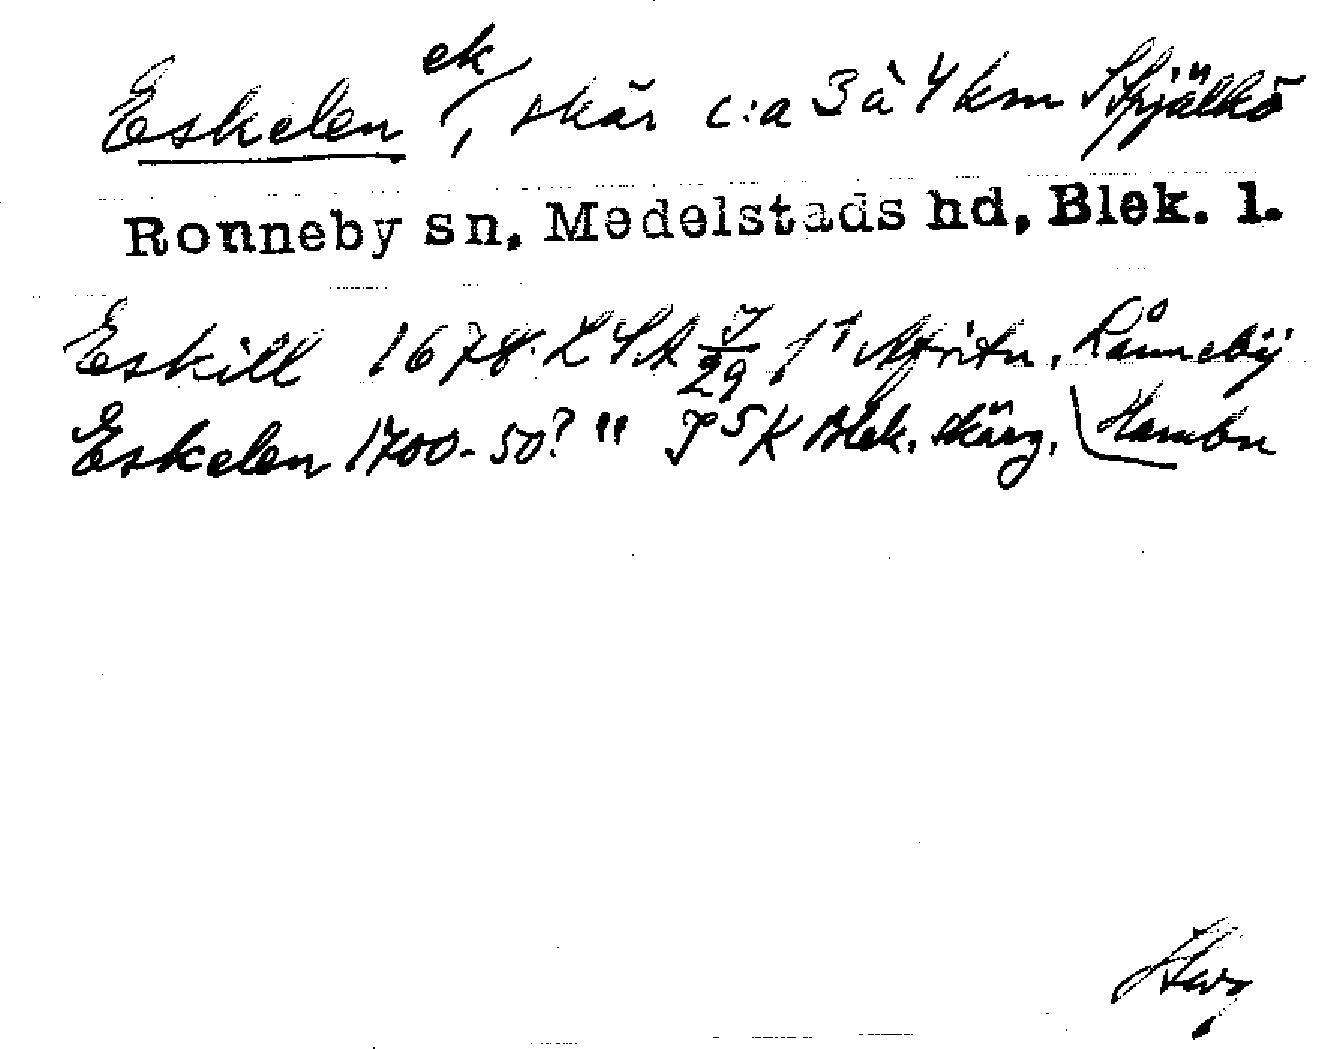 Eskelen ek/, skär c:a 3 à 4 km S Spjälkö
Ronneby sn, Medelstads hd, Blek. l.
Eskill 1678 LSA J/29 f1 Afritn. Rånneby
Eskelen 1700-50? " JSK Blek. skärg. Hambn